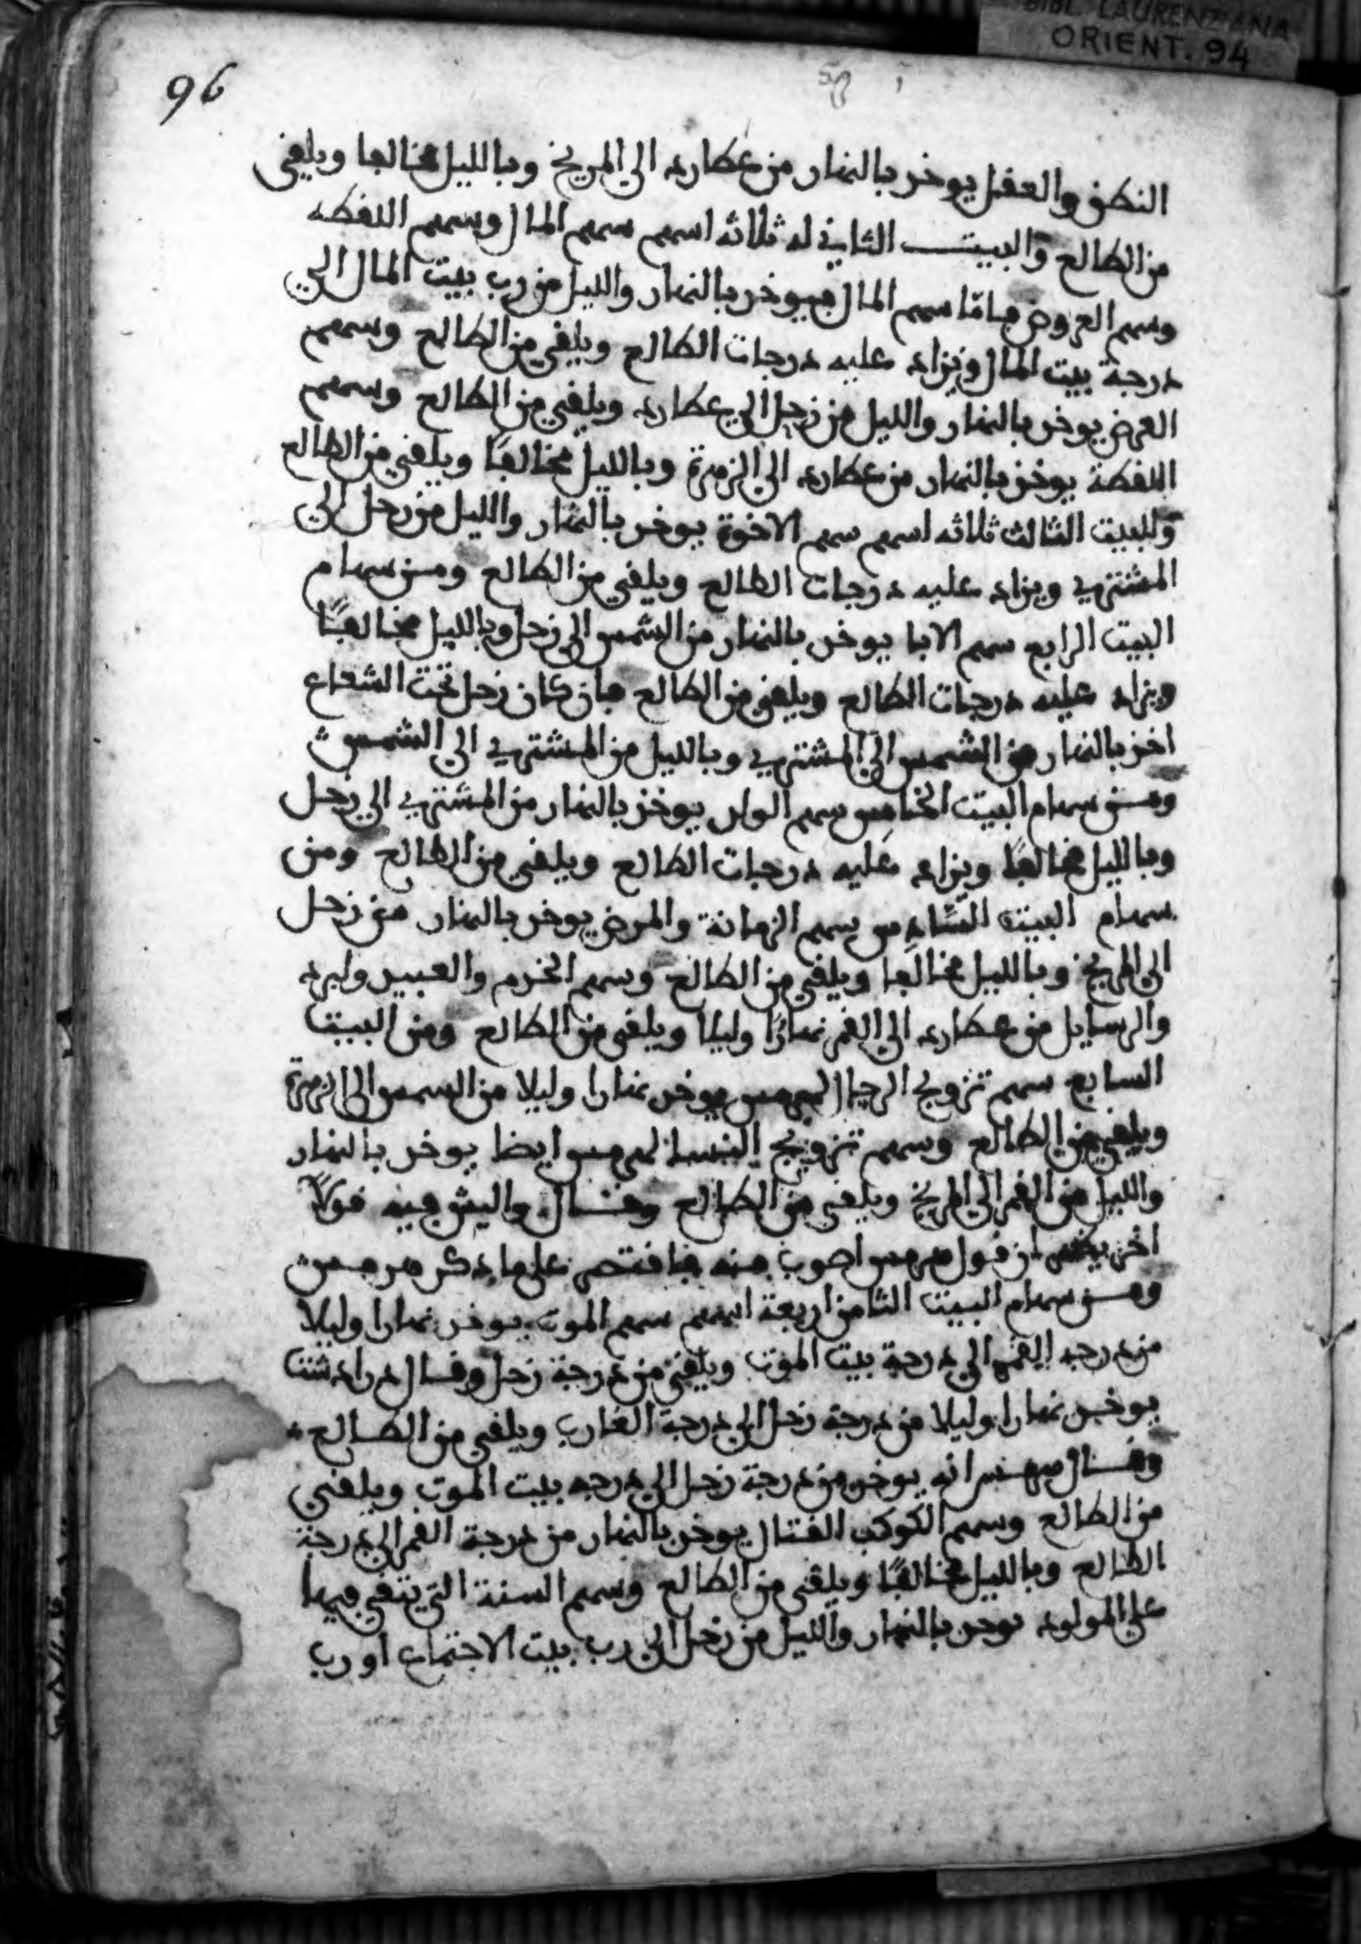 BIBL. LAURENZIANA
ORIENT. 94
96
النطق والعقل يوخذ بالنهار من عطارد الى المريخ وبالليل مخالفا ويلقى
من الطالع والبيت الثاني له ثلاثه اسهم سهم المال وسهم اللقطه
وسهم العروض فامّا سهم المال فيوخذ بالنهار والليل من رب بيت المال الي
درجة بيت المال ويزاد عليه درجات الطالع ويلقي من الطالع وسهم
العرض يوخذ بالنهار والليل من زحل الي عطارد ويلقي من الطالع وسهم
اللقطة يوخذ بالنهار من عطارد الي الزهرة وبالليل مخالفًا ويلقي من الطالع
وللبيت الثالث ثلاثه اسهم سهم الاخوة يوخذ بالنهار والليل من زحل الي
المشتري ويزاد عليه درجات الطالع ويلقي من الطالع ومن سهام
البيت الرابع سهم الابا يوخذ بالنهار من الشمس الي زحل وبالليل مخالفًا
ويزاد عليه درجات الطالع ويلقي من الطالع فان كان زحل تحت الشعاع
اخذ بالنهار من الشمس الي المشتري وبالليل من المشتري الي الشمس
ومن سهام البيت الخامس سهم الولد يوخذ بالنهار من المشتري الي زحل
وبالليل مخالفًا ويزاد عليه درجات الطالع ويلقي من الطالع ومن
سهام البيت السّادس سهم الزمانة والمرض يوخذ بالنهار من زحل
الي المريخ وبالليل مخالفا ويلقي من الطالع وسهم الخدم والعبيد
والرسايل من عطارد الي القمر نهارًا وليلا ويلقي من الطالع ومن البيت
السابع سهم تزويج الرجال لهرمس يوخذ نهارا وليلا من الشمس الي الزهرة
ويلقي من الطالع وسهم تزويج النسا لهرمس ايضا يوخذ بالنهار
والليل من القمر الي المريخ ويلقي من الطالع وقال واليس فيه قولًا
اخر قول هرمس اصوب منه فاقتصر علي ما ذكر هرمس
ومن سهام البيت الثامن اربعة اسهم سهم الموت يوخذ نهارا وليلا
من درجه القمر الي درجة بيت الموت ويلقي من درجة زحل وقال
يوخذ نهارا وليلا من درجة زحل الي درجة الغارب ويلقي من الطالع
وقال انه يوخذ من درجة زحل الي درجه بيت الموت ويلقي
من الطالع وسهم الكوكب القتال يوخذ بالنهار من درجة القمر الي درجة
الطالع وبالليل مخالفًا ويلقي من الطالع وسهم السنة التي يتقي فيها
علي المولود يوخذ بالنهار والليل من زحل الي رب بيت الاجتماع او رب